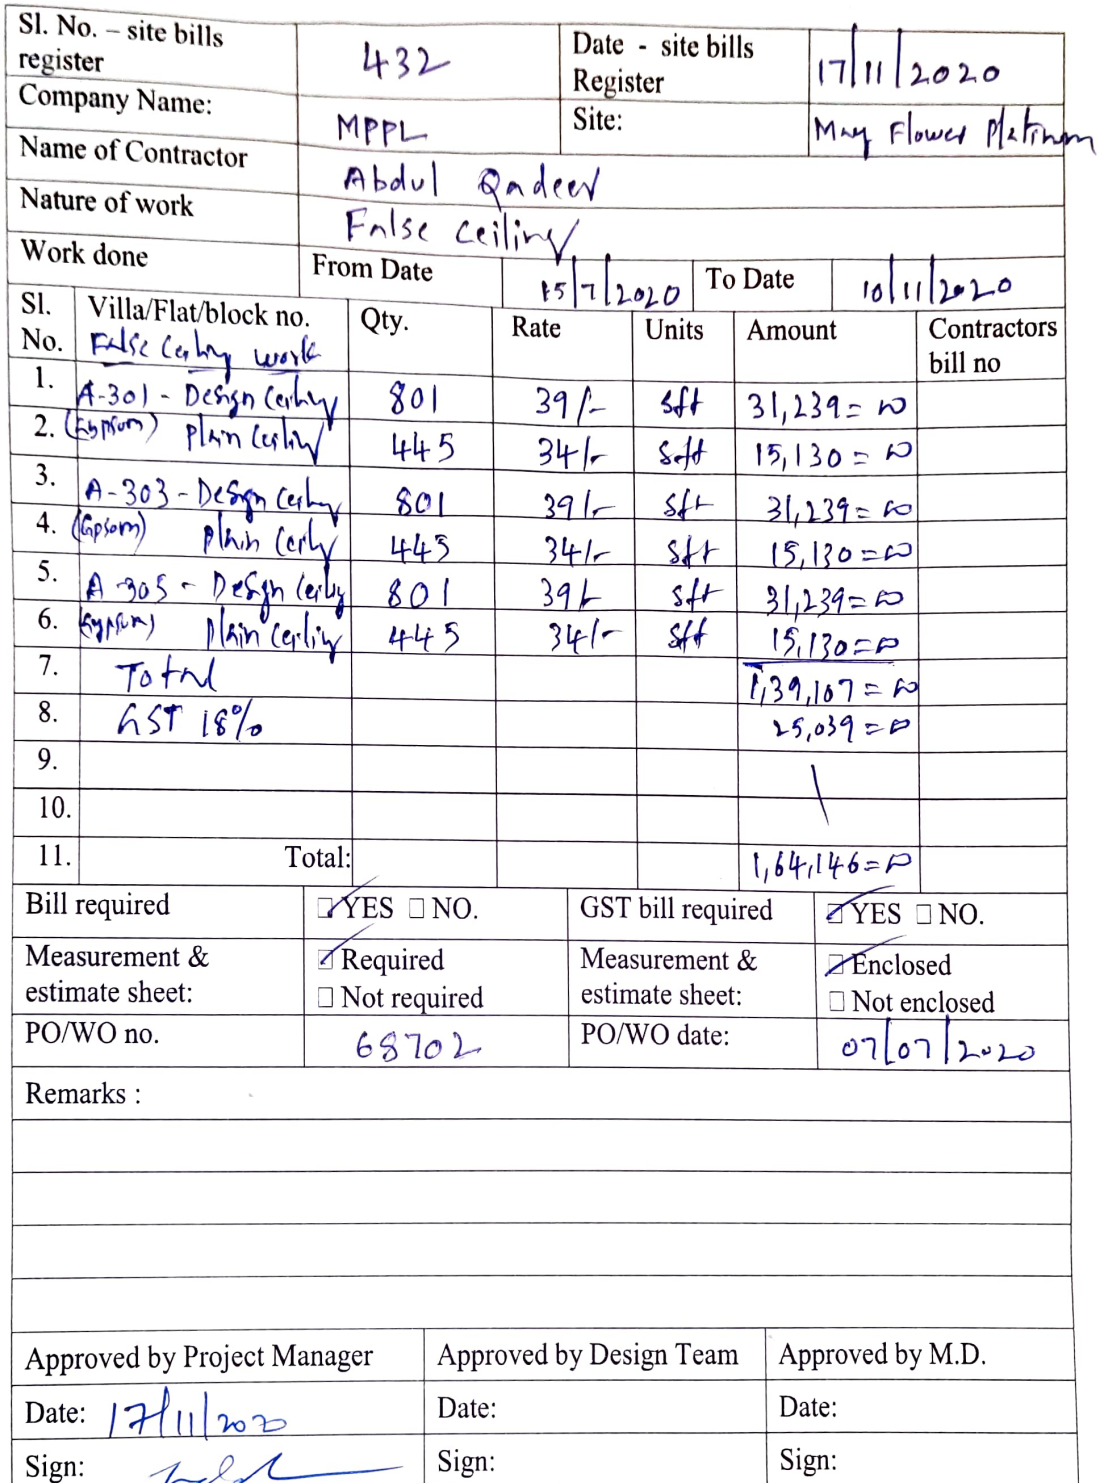 Sl. No. – site bills register 432 Date - site bills Register 17/11/2020
Company Name: MPPL Site: May Flower Platinum
Name of Contractor Abdul Qadeer
Nature of work False ceiling
Work done From Date 15/7/2020 To Date 10/11/2020
Sl. No. Villa/Flat/block no. Qty. Rate Units Amount Contractors bill no
False Ceiling work
1. A-301 - Design Ceiling 801 39/- sft 31,239=00
2. (Gypsum) plain Ceiling 445 34/- sft 15,130=00
3. A-303 - Design Ceiling 801 39/- sft 31,239=00
4. (Gpsom) plain Ceily 445 34/- sft 15,130=00
5. A-305 - Design Ceiling 801 39/- sft 31,239=00
6. (Gypsum) plain Ceiling 445 34/- sft 15,130=00
7. Total 1,39,107=00
8. GST 18% 25,039=00
9.
10.
11. Total: 1,64,146=00
Bill required YES NO. GST bill required YES NO.
Measurement & estimate sheet: Required Not required Measurement & estimate sheet: Enclosed Not enclosed
PO/WO no. 68702 PO/WO date: 07/07/2020
Remarks :
Approved by Project Manager Approved by Design Team Approved by M.D.
Date: 17/11/2020 Date: Date:
Sign: Sign: Sign: